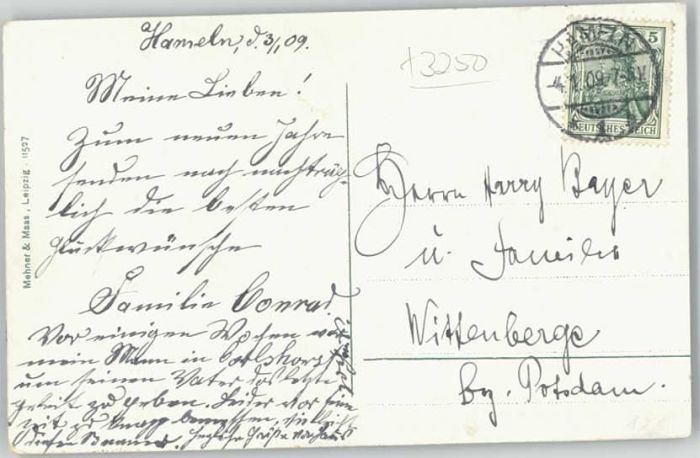 Hameln, d. 3/1 09.
Meine Lieben!
Zum neuen Jahre
senden noch nachträg-
lich die besten
Glückwünsche
Familie Conrad.
Vor einigen Wochen war
mein Mann in Carlshorst
um seinen Vater das letzte
geleit zu geben. Leider war seine
zeit zu knapp
Herzliche Grüße
Mehner & Maas, Leipzig. 11527
+3250
HAMELN
4.1.09.7-8V.
1
5
DEUTSCHES REICH
Herrn Harry Bayer
u. Familie
Wittenberge
bz. Potsdam.